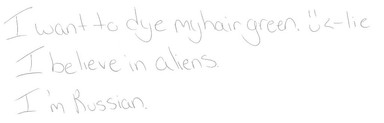 I want to dye my hair green. ü<-lie
I believe in aliens.
I'm Russian.